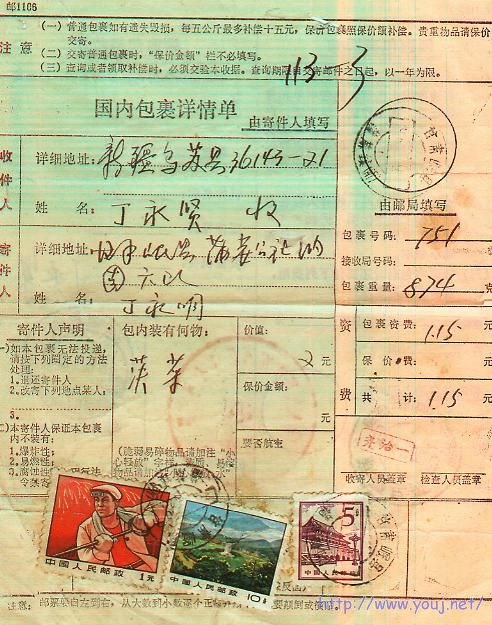 邮1106
注意
(一)普通包裹如有遗失毁损,每五公斤最多补偿十五元,保价包裹照保价额补偿。贵重物品请保价
交寄。
(二)交寄普通包裹时,“保价金额”栏不必填写。
(三)查询或者领取补偿时,必须交验本收据。查询期限自交寄邮件之日起,以一年为限。
113
国内包裹详情单
由寄件人填写
收件人
详细地址:新疆乌苏县36143-21
姓名:丁永贤 收
由邮局填写
寄件人
详细地址:
六队
姓名:丁永
包裹号码:751
接收局号码:
包裹重量:874克
寄件人声明
(一)如本包裹无法投递,
请按下列圈定的方法
处理:
1.退还寄件人
2.改寄下列地点某人:
3.
(二)本寄件人保证本包裹
内不装有:
1.爆炸性;
2.易燃性;
包内装有何物:
茶
(脆弱易碎物品请加注“小
心轻放”
价值:
2元
保价金额:
元
要否航空
资费
包裹资费:1.15元
保价费:元
共计:1.15元
收寄人员盖章
检查人员盖章
中国人民邮政
1元
中国人民邮政
10分
5分
中国人民邮政
注意:邮票应自左到右,从大数到小数逐个正
http://www.youj.net/